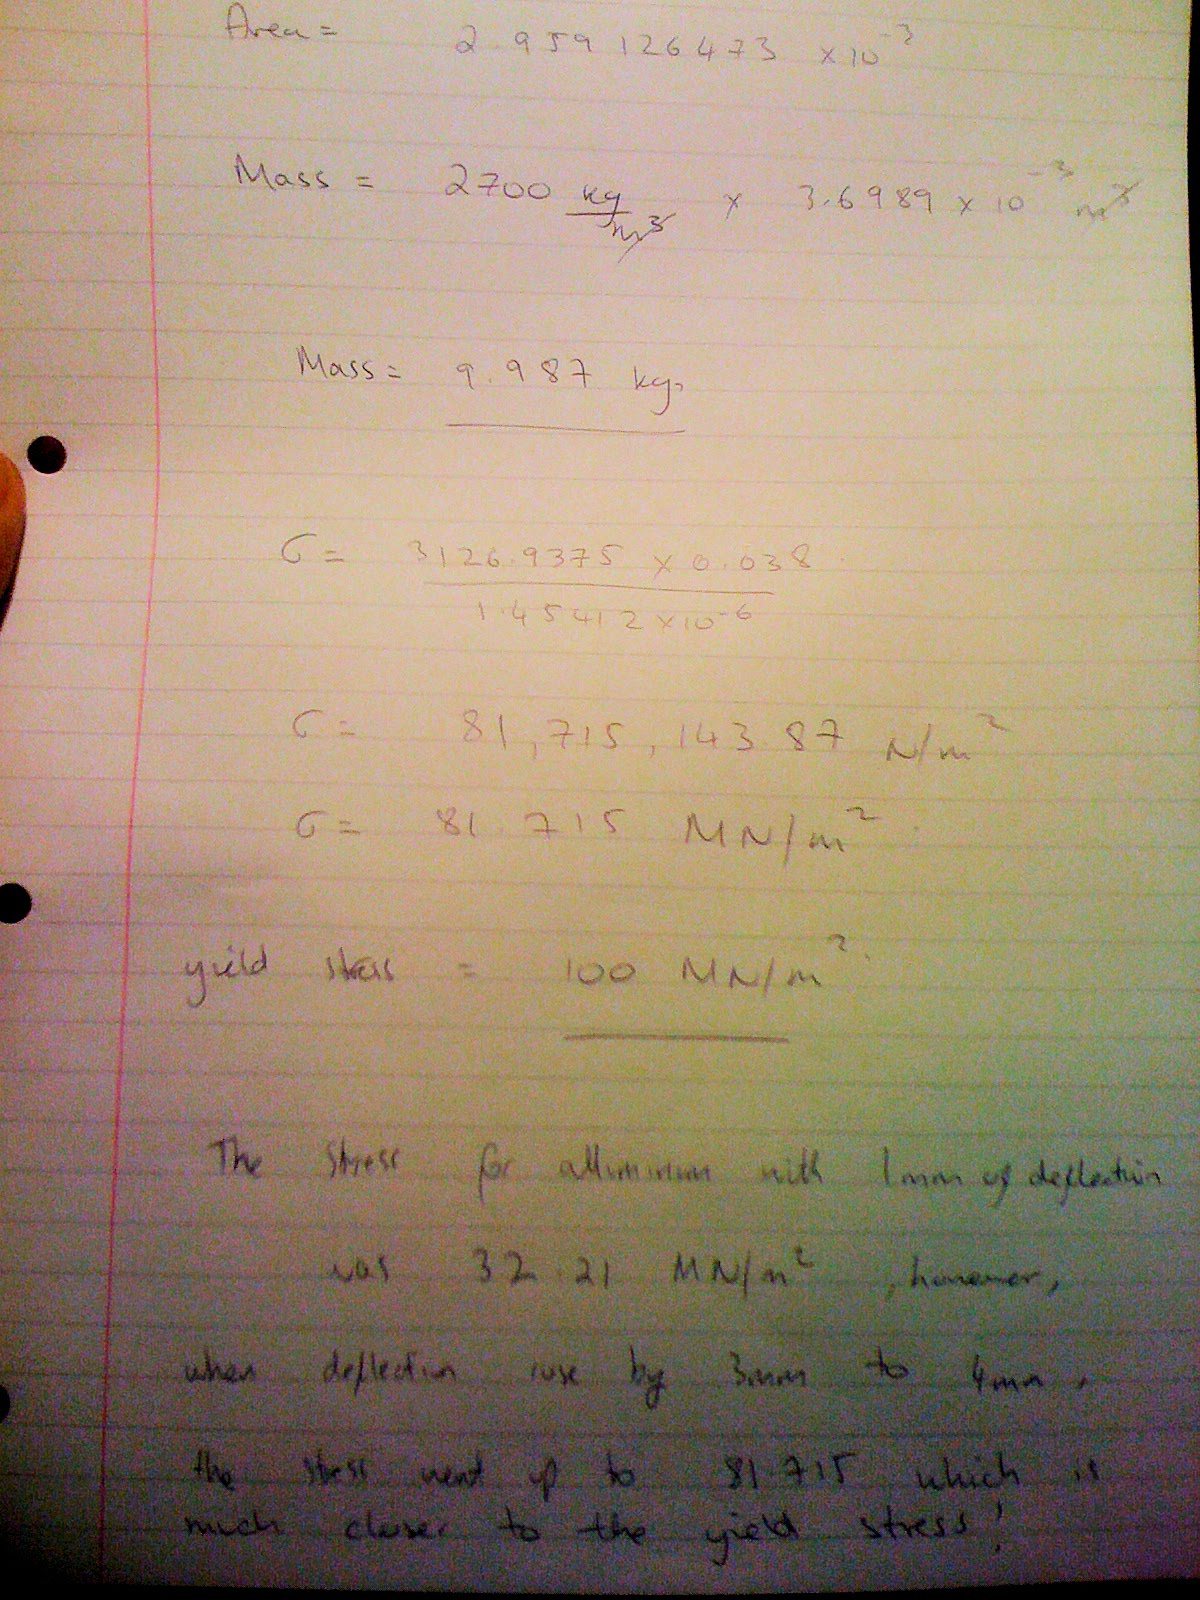 Area = 2.959126473 × 10⁻³
Mass = 2700 kg/m³ × 3.6989 × 10⁻³ m³
Mass = 9.987 kg.
σ = 3126.9375 × 0.038
1.45412 × 10⁻⁶
σ = 81,715,143.87 N/m²
σ = 81.715 MN/m²
yield stress = 100 MN/m²
The stress for alluminium with 1mm of deflection
was 32.21 MN/m², however,
when deflection rose by 3mm to 4mm,
the stress went up to 81.715 which is
much closer to the yield stress!